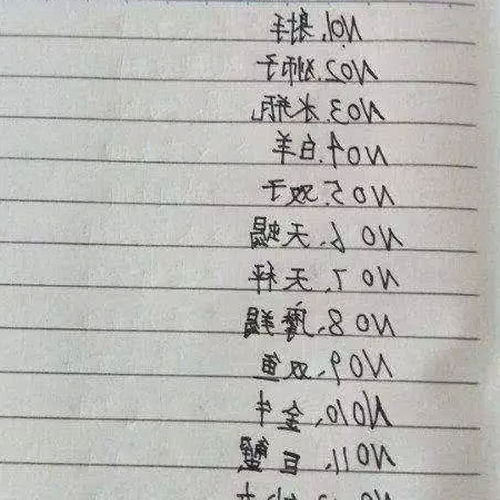 NO1.射手
NO2.狮子
NO3.水瓶
NO.4.白羊
NO.5.双子
NO 6、天蝎
NO 7、天秤
NO 8、摩羯
NO9、双鱼
NO10、金牛
NO11、巨蟹